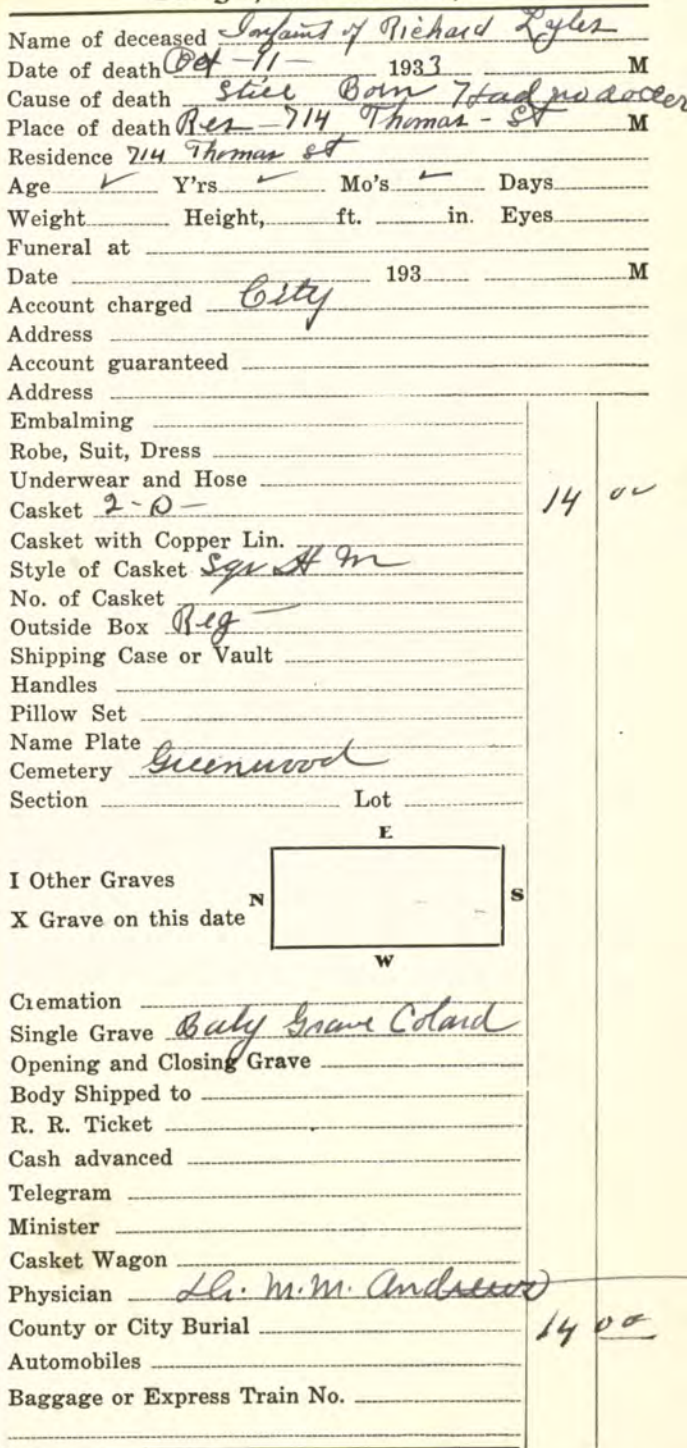 Name of deceased Infant of Richard Lyles
Date of death Oct - 11 - 1933 M
Cause of death Still Born Had no docter
Place of death Res - 714 Thomas - St M
Residence 714 Thomas st
Age ✓ Y'rs ✓ Mo's ✓ Days
Weight Height, ft. in. Eyes
Funeral at
Date 193 M
Account charged City
Address
Account guaranteed
Address
Embalming
Robe, Suit, Dress
Underwear and Hose
Casket 2-0- 14 00
Casket with Copper Lin.
Style of Casket Sqr H M
No. of Casket
Outside Box Reg -
Shipping Case or Vault
Handles
Pillow Set
Name Plate
Cemetery Greenwood
Section Lot
E
I Other Graves
N S
X Grave on this date
W
Cremation
Single Grave Baby Grave Colard
Opening and Closing Grave
Body Shipped to
R. R. Ticket
Cash advanced
Telegram
Minister
Casket Wagon
Physician Dr. M.M. Andrews
County or City Burial 14 00
Automobiles
Baggage or Express Train No.